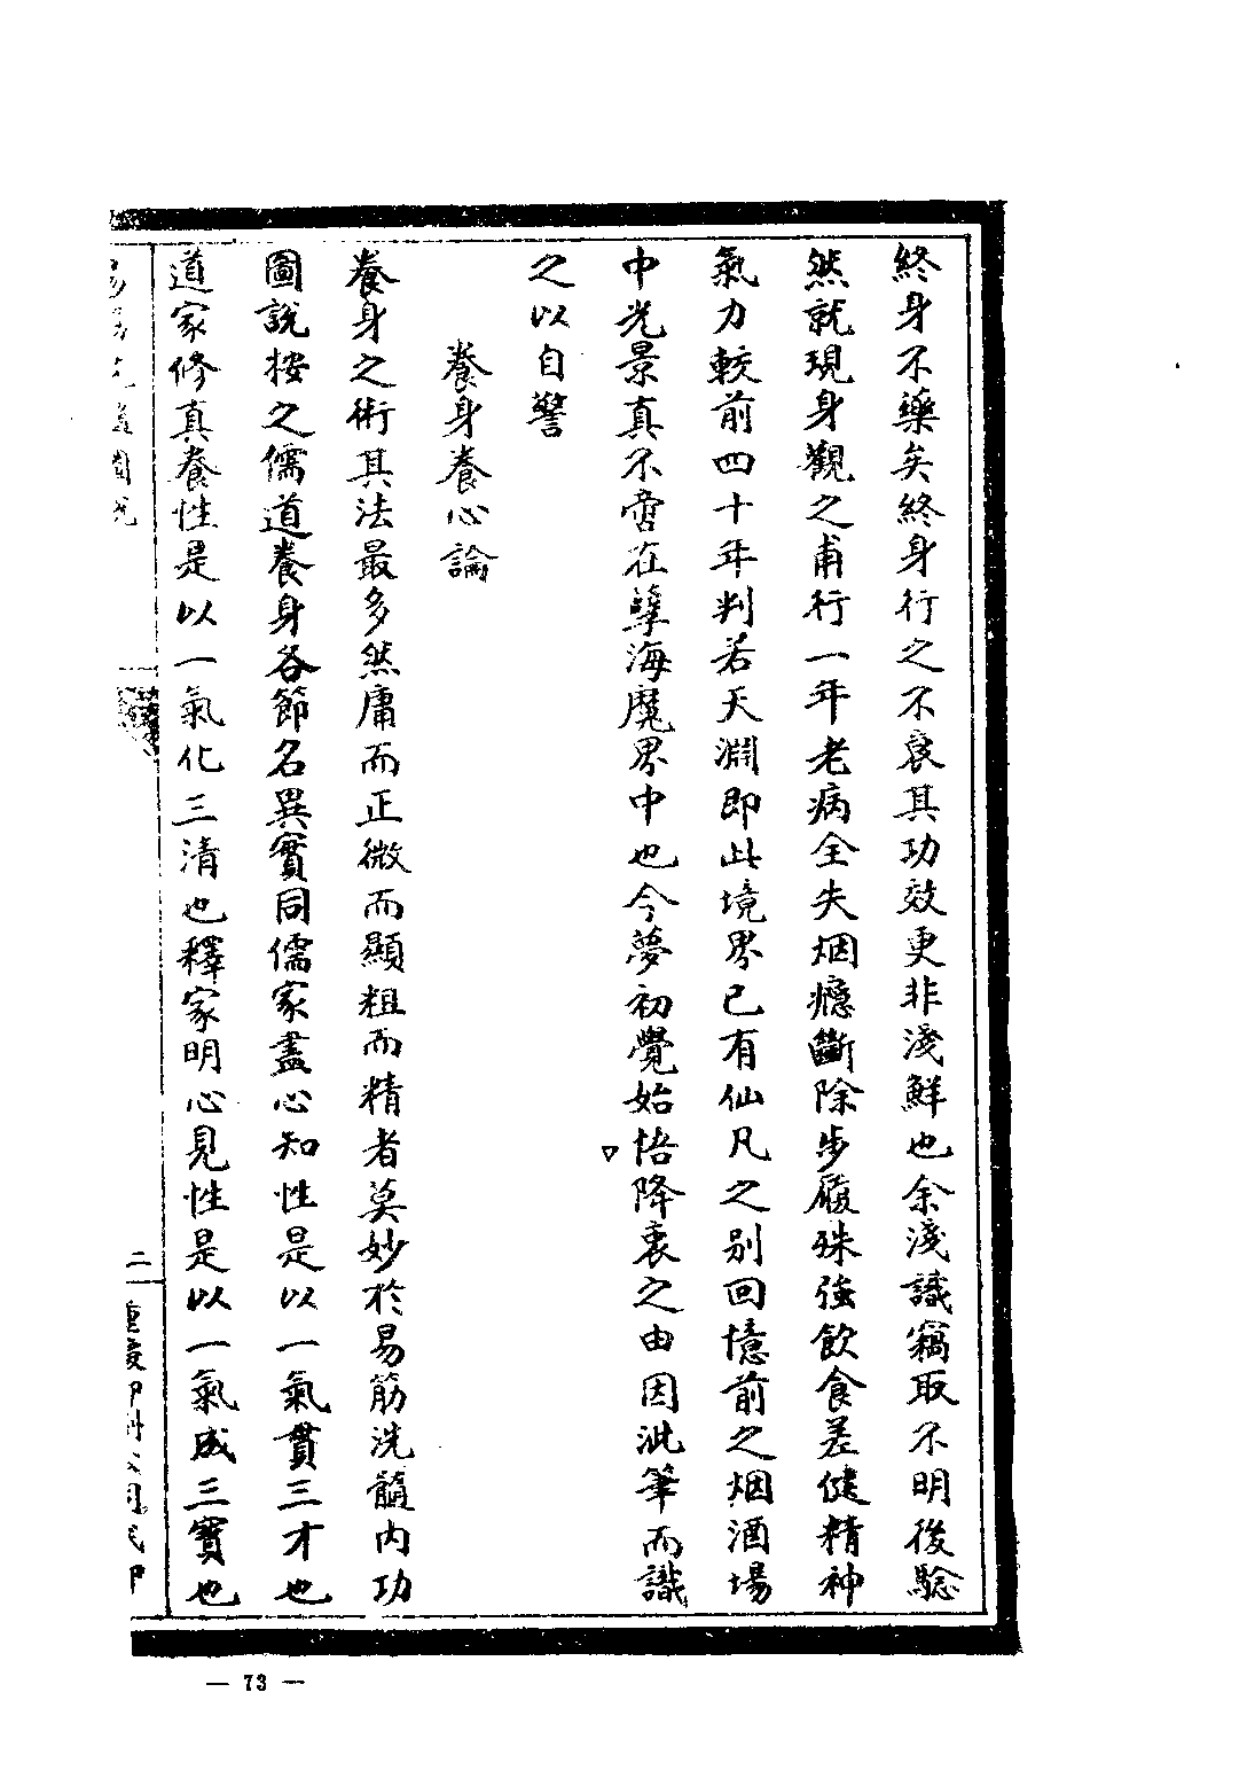 終身不藥矣終身行之不衰其功效更非淺鮮也余淺識竊取不明後驗
然就現身觀之甫行一年老病全失烟癮斷除步履殊強飲食差健精神
氣力較前四十年判若天淵即此境界已有仙凡之別回憶前之烟酒場
中光景真不啻在孽海魔界中也今夢初覺始悟降衷之由因泚筆而識
之以自警
養身養心論
養身之術其法最多然庸而正微而顯粗而精者莫妙於易筋洗髓內功
圖說按之儒道養身各節名異實同儒家盡心知性是以一氣貫三才也
道家修真養性是以一氣化三清也釋家明心見性是以一氣成三寶也
二
— 73 —